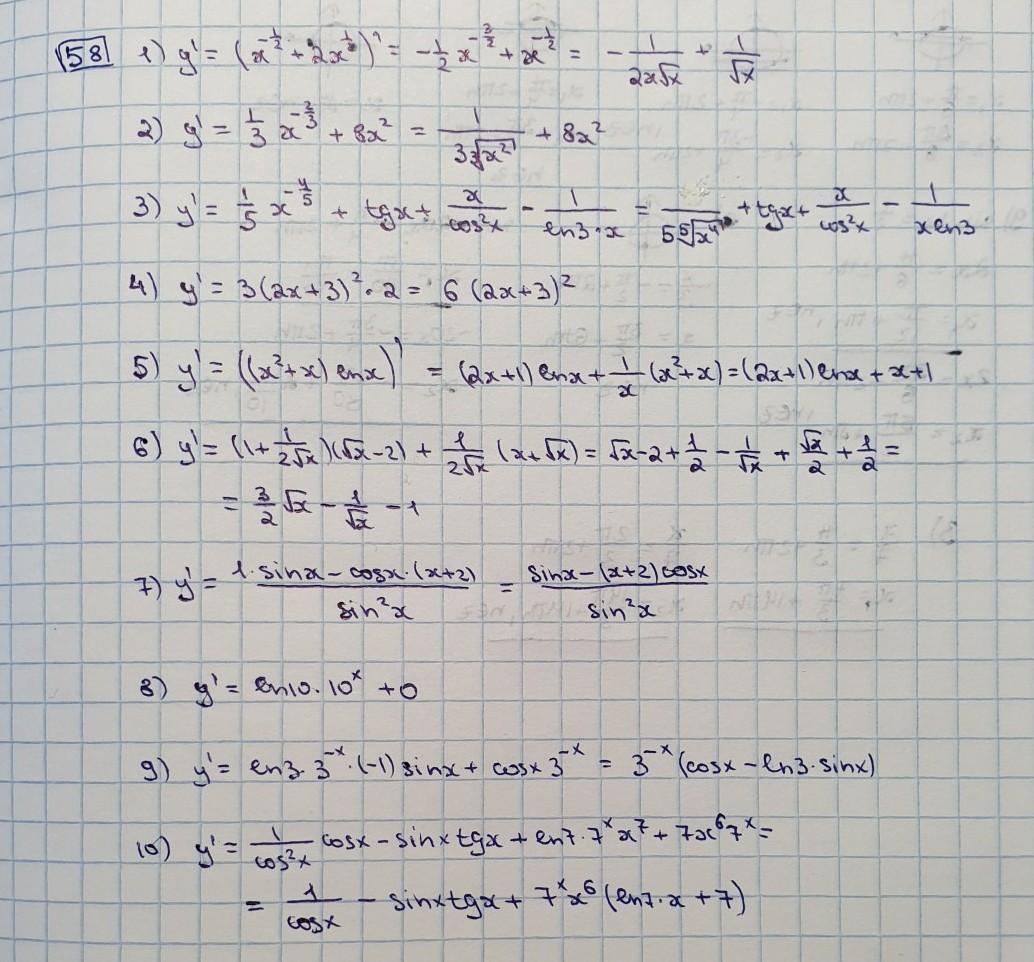 58 1) y' = (x^{-1/2} + 2x^{1/2})' = -1/2 x^{-3/2} + x^{-1/2} = -1/(2x√x) + 1/√x
2) y' = 1/3 x^{-2/3} + 8x² = 1/(3∛x²) + 8x²
3) y' = 1/5 x^{-4/5} + tgx + x/cos²x - 1/(ln3·x) = 1/(5⁵√x⁴) + tgx + x/cos²x - 1/(xln3)
4) y' = 3(2x+3)²·2 = 6(2x+3)²
5) y' = ((x²+x)lnx)' = (2x+1)lnx + 1/x (x²+x) = (2x+1)lnx + x+1
6) y' = (1+1/(2√x))(√x-2) + 1/(2√x) (x+√x) = √x-2+1/2-1/√x+√x/2+1/2=
= 3/2 √x - 1/√x - 1
7) y' = (1·sinx-cosx·(x+2))/sin²x = (sinx-(x+2)cosx)/sin²x
8) y' = ln10·10^x + 0
9) y' = ln3·3^{-x}·(-1)sinx + cosx 3^{-x} = 3^{-x}(cosx-ln3·sinx)
10) y' = 1/cos²x cosx - sinx tgx + ln7·7^x x⁷ + 7x⁶7^x =
= 1/cosx - sinxtgx + 7^x x⁶(ln7·x+7)